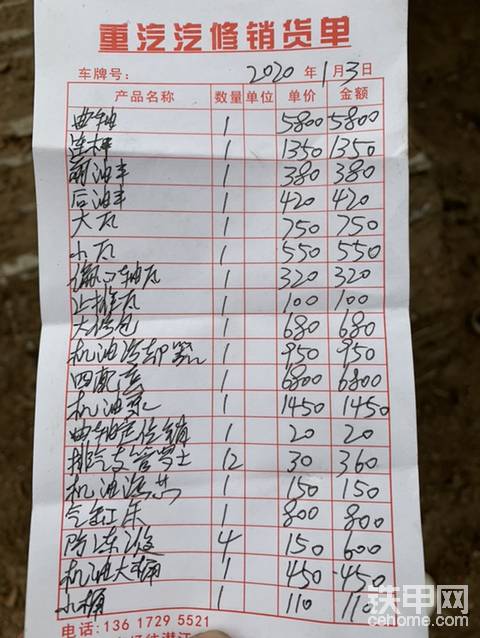 重汽汽修销货单
车牌号： 2020 年 1 月 3 日
产品名称 数量 单位 单价 金额
曲轴 1 5800 5800
连杆 1 1350 1350
前油丰 1 380 380
后油丰 1 420 420
大瓦 1 750 750
小瓦 1 550 550
偏心轴瓦 1 320 320
止推瓦 1 100 100
大修包 1 680 680
机油冷却器 1 950 950
四配套 1 6800 6800
机油泵 1 1450 1450
曲轴定位销 1 20 20
排汽支管罗士 12 30 360
机油滤芯 1 150 150
气缸床 1 800 800
防冻液 4 150 600
机油大桶 1 450 450
小桶 1 110 110
电话：136 1729 5521
铁甲网
cehome.com